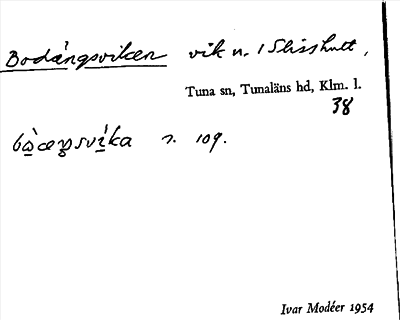 Bodängsviken vik n. i Slisshult,
Tuna sn, Tunaläns hd, Klm. l.
38
s. 109.
Ivar Modéer 1954